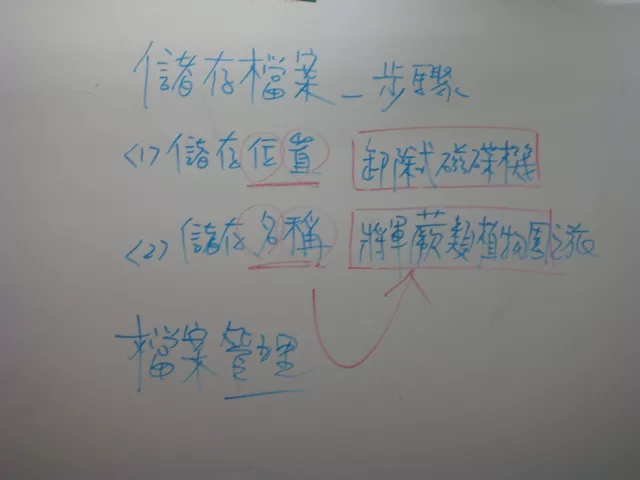 儲存檔案_步驟
<1>儲存位置 卸除式磁碟機
<2>儲存名稱 將軍蕨類植物園之旅
檔案管理